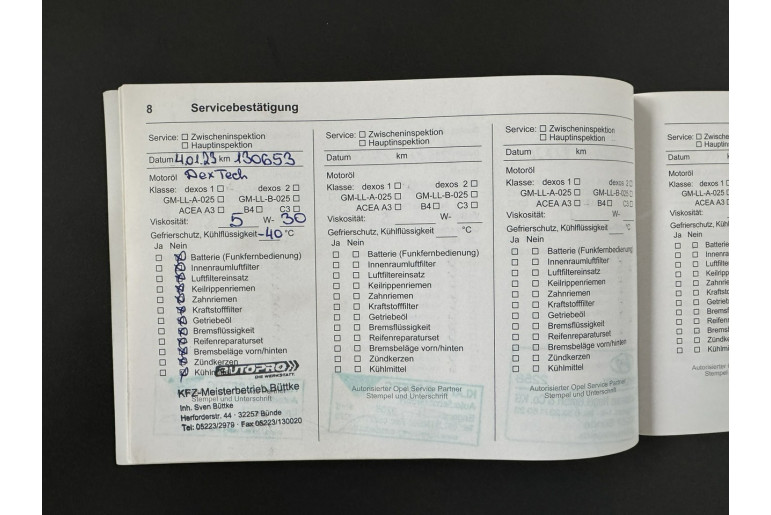 8 Servicebestätigung
Service: ☐ Zwischeninspektion
☐ Hauptinspektion
Datum 4.01.23 km 130653
Motoröl DexTech
Klasse: dexos 1 ☐ dexos 2 ☐
GM-LL-A-025 ☐ GM-LL-B-025 ☐
ACEA A3 ☐ B4 ☐ C3 ☐
Viskosität: 5 W- 30
Gefrierschutz, Kühlflüssigkeit -40 °C
Ja Nein
Batterie (Funkfernbedienung)
Innenraumluftfilter
Luftfiltereinsatz
Keilrippenriemen
Zahnriemen
Kraftstofffilter
Getriebeöl
Bremsflüssigkeit
Reifenreparaturset
Bremsbeläge vorn/hinten
Zündkerzen
AUTOPRO
DIE WERKSTATT.
KFZ-Meisterbetrieb Büttke
Inh. Sven Büttke
Herforderstr. 44 · 32257 Bünde
Tel: 05223/2979 · Fax 05223/130020
Service: ☐ Zwischeninspektion
☐ Hauptinspektion
Datum km
Motoröl
Klasse: dexos 1 ☐ dexos 2 ☐
GM-LL-A-025 ☐ GM-LL-B-025 ☐
ACEA A3 ☐ B4 ☐ C3 ☐
Viskosität: W-
Gefrierschutz, Kühlflüssigkeit °C
Ja Nein
☐ ☐ Batterie (Funkfernbedienung)
☐ ☐ Innenraumluftfilter
☐ ☐ Luftfiltereinsatz
☐ ☐ Keilrippenriemen
☐ ☐ Zahnriemen
☐ ☐ Kraftstofffilter
☐ ☐ Getriebeöl
☐ ☐ Bremsflüssigkeit
☐ ☐ Reifenreparaturset
☐ ☐ Bremsbeläge vorn/hinten
☐ ☐ Zündkerzen
☐ ☐ Kühlmittel
Autorisierter Opel Service Partner
Stempel und Unterschrift
Service: ☐ Zwischeninspektion
☐ Hauptinspektion
Datum km
Motoröl
Klasse: dexos 1 ☐ dexos 2 ☐
GM-LL-A-025 ☐ GM-LL-B-025
ACEA A3 ☐ B4 ☐ C3 ☐
Viskosität: W-
Gefrierschutz, Kühlflüssigkeit °C
Ja Nein
☐ ☐ Batterie (Funkfernbedienung)
☐ ☐ Innenraumluftfilter
☐ ☐ Luftfiltereinsatz
☐ ☐ Keilrippenriemen
☐ ☐ Zahnriemen
☐ ☐ Kraftstofffilter
☐ ☐ Getriebeöl
☐ ☐ Bremsflüssigkeit
☐ ☐ Reifenreparaturset
☐ ☐ Bremsbeläge vorn/hinten
☐ ☐ Zündkerzen
☐ ☐ Kühlmittel
Autorisierter Opel Service Partner
Stempel und Unterschrift
Service: ☐
Datum
Motoröl
Klasse: dexos
GM-LL-A-0
ACEA
Viskosität:
Gefrierschutz,
Ja Nein